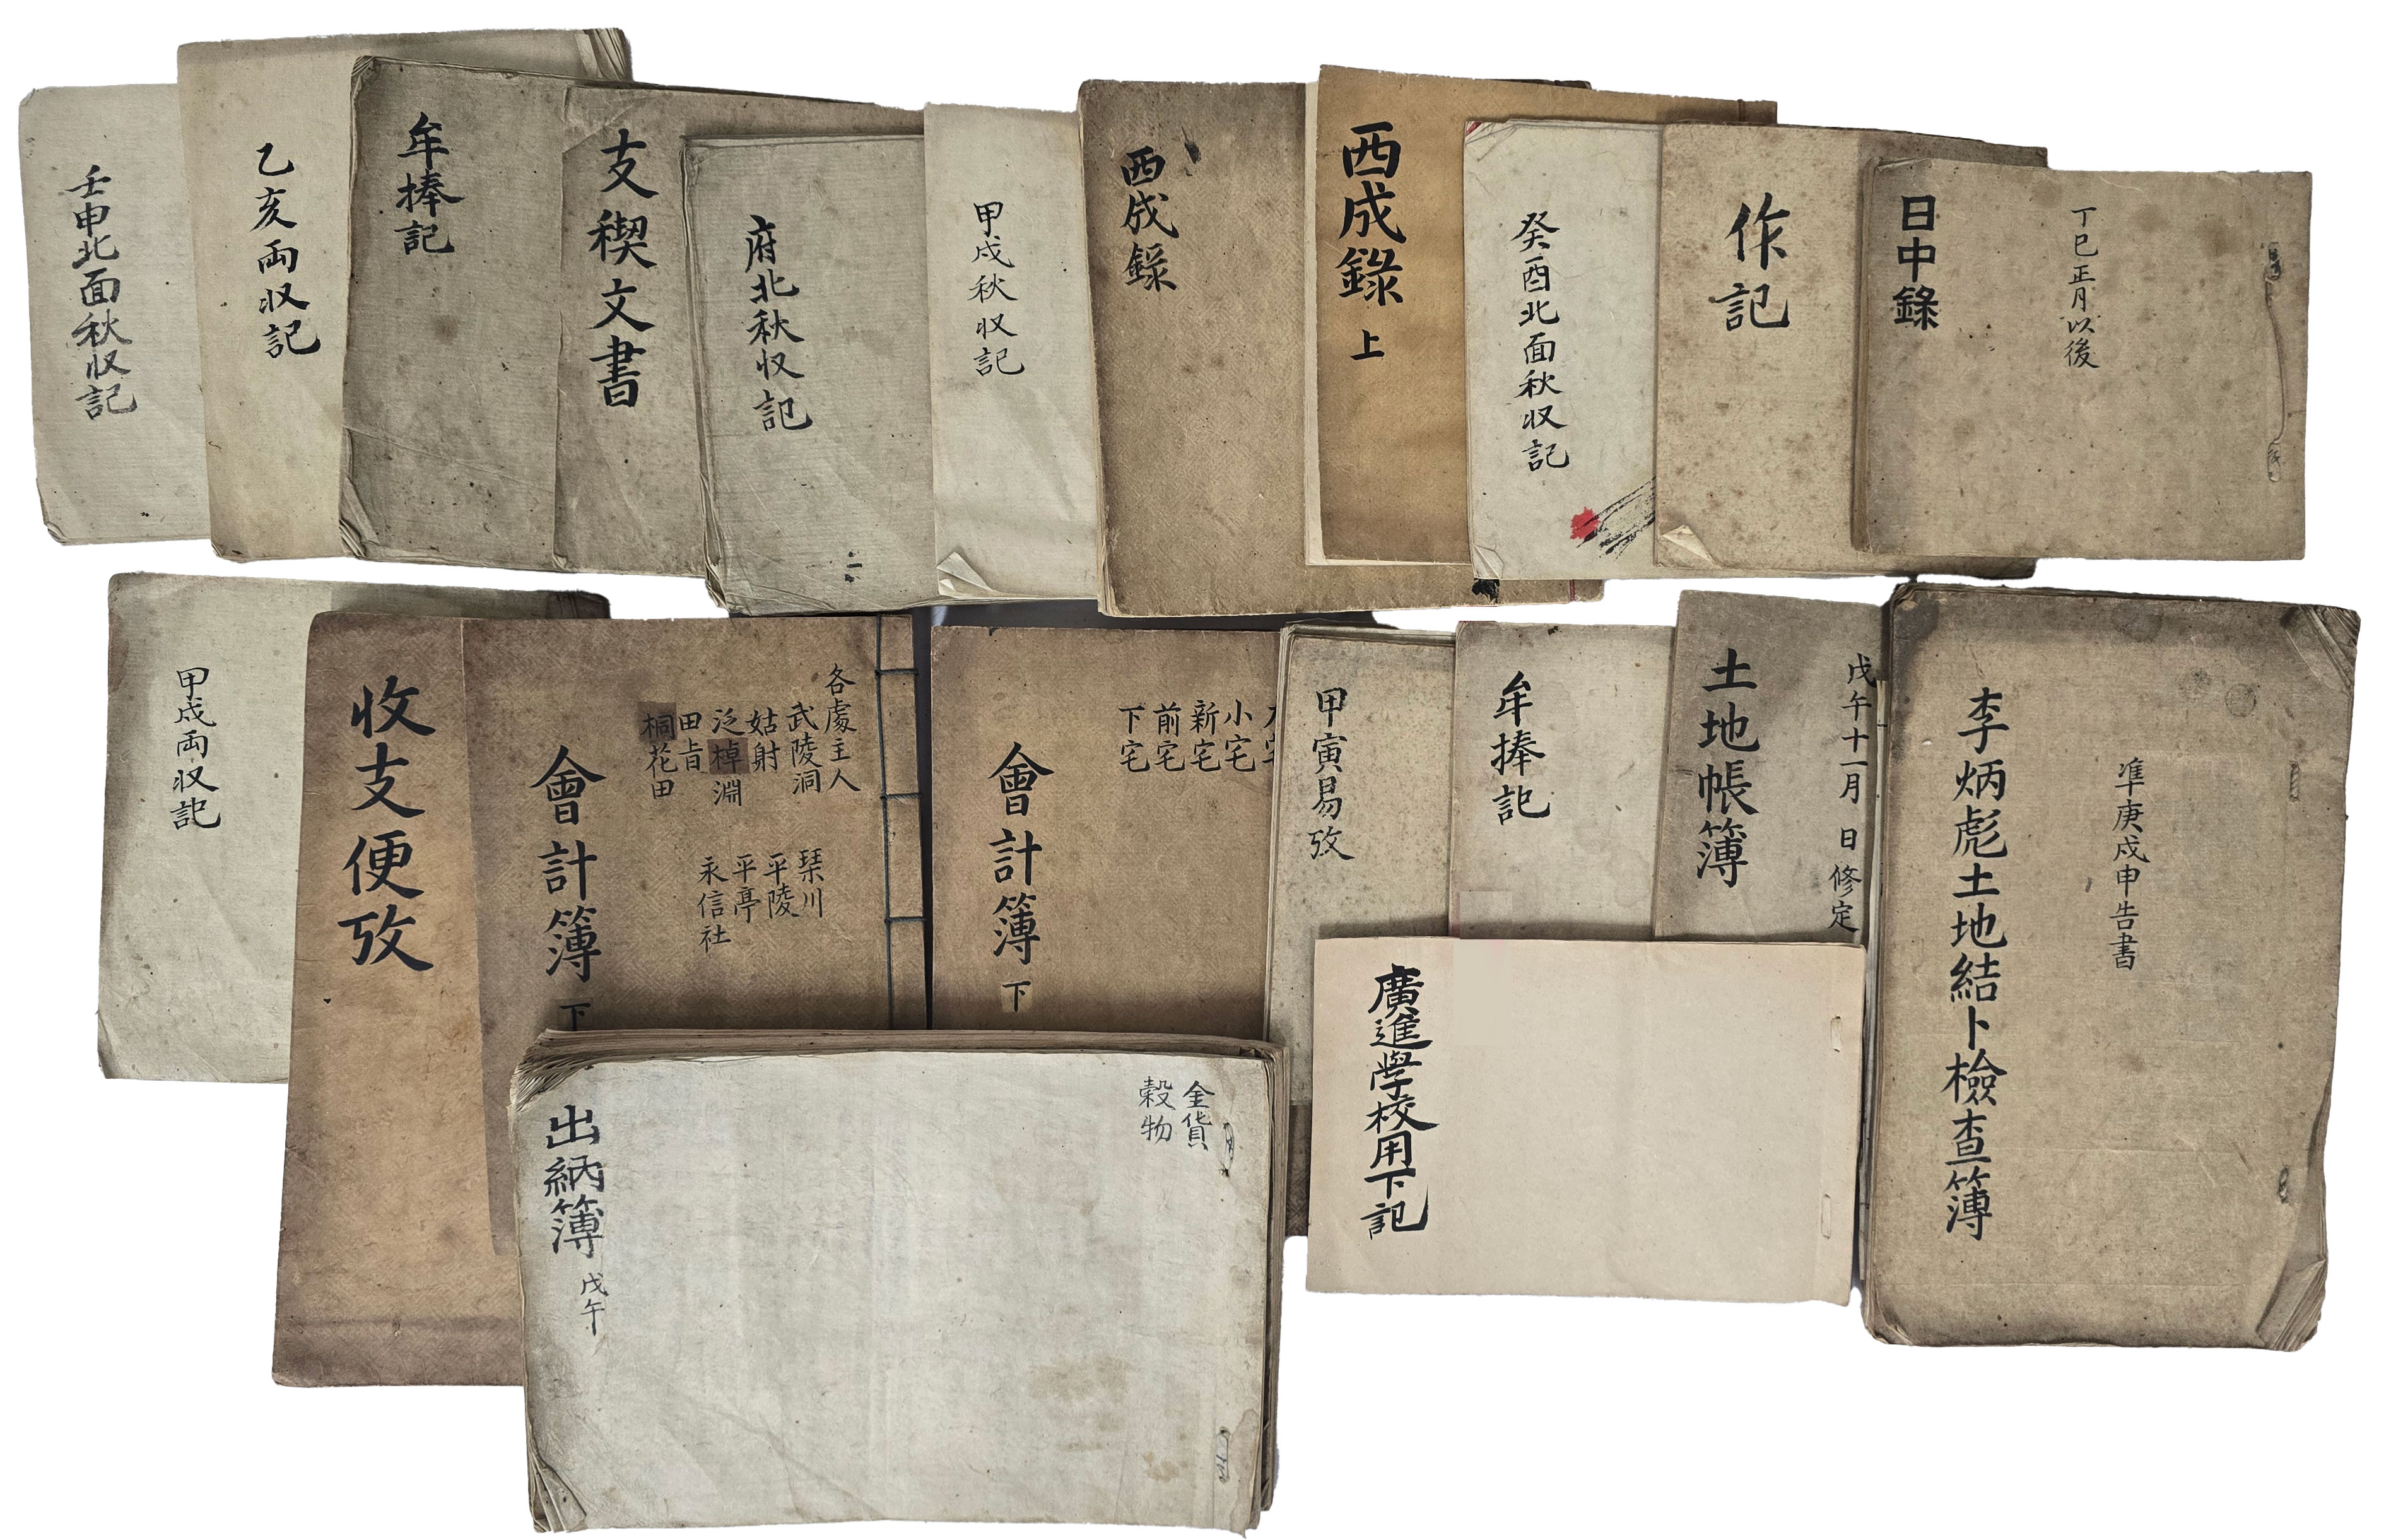 壬申北面秋収記
乙亥両収記
牟捧記
支稧文書
府北秋収記
甲戌秋収記
西成錄
西成錄 上
癸酉北面秋収記
作記
丁巳正月以後
日中錄
甲戌両収記
收支便攷
各處主人
武陵洞
姑射
泛棹淵
田旨
桐花田
琹川
平陵
平亭
永信社
會計簿 下
小宅
新宅
前宅
下宅
會計簿 下
甲寅易攷
牟捧記
戊午十一月 日 修定
土地帳簿
準庚戌申告書
李炳彪土地結卜檢查簿
金貨
穀物
出納簿 戊午
廣進學校用下記